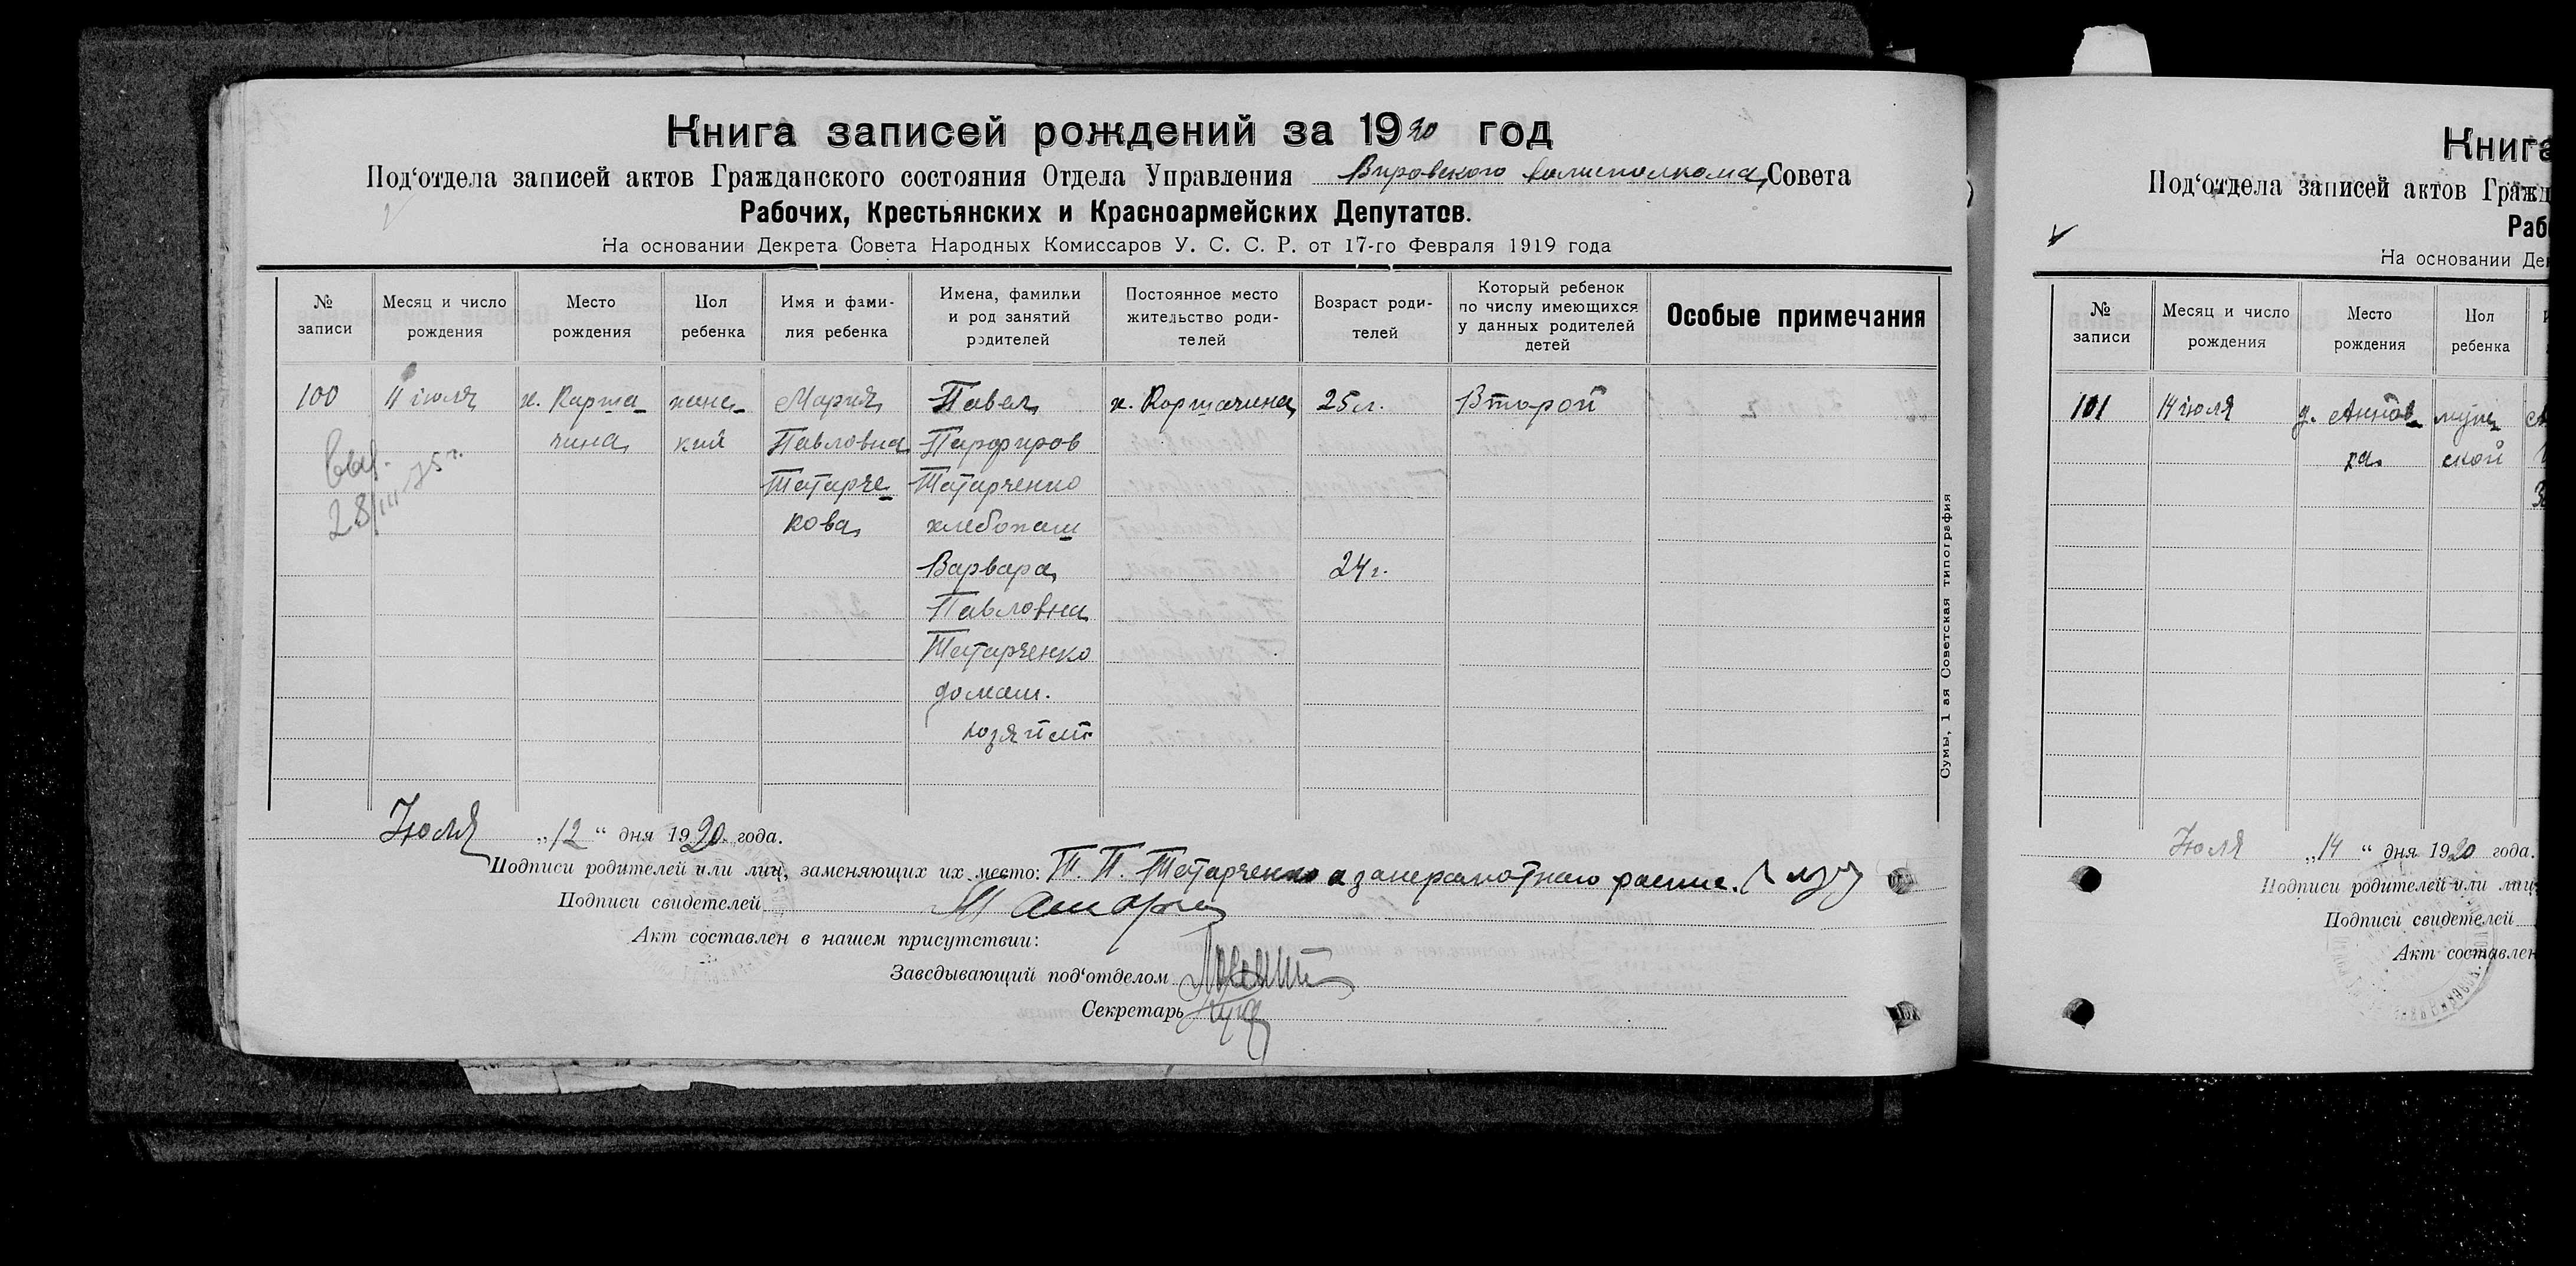 Книга записей рождений за 1920 год
Под‘отдела записей актов Гражданского состояния Отдела Управления Вировского волисполкома Совета
Рабочих, Крестьянских и Красноармейских Депутатов.
На основании Декрета Совета Народных Комиссаров У. С. С. Р. от 17-го Февраля 1919 года
№ записи
Месяц и число рождения
Место рождения
Пол ребенка
Имя и фами-
лия ребенка
Имена, фамилии
и род занятий
родителей
Постоянное место
жительство роди-
телей
Возраст роди-
телей
Который ребенок
по числу имеющихся
у данных родителей
детей
Особые примечания
100 11 июля х. Карта- женс- Мария Павел х. Корташина 25 л. Второй
чина кий Павловна Парфиров
Татарче- Татарченко
кова хлебопаш
Варвара 24 г.
Павловна
Татарченко
домаш.
хозяйст
28/III 75 г.
Июля „12“ дня 1920 года.
Подписи родителей или лиц, заменяющих их место: Т. П. Татарченко а за неграмотного распис.
Подписи свидетелей
Акт составлен в нашем присутствии:
Заведывающий под‘отделом
Секретарь
Сумы, 1 ая Советская типография
Книга
Под‘отдела записей актов Гражд
Раб
На основании Де
№ записи
Месяц и число рождения
Место рождения
Пол ребенка
101 14 июля д. Аннов- муж
ка ской
Июля „14“ дня 1920 года.
Подписи родителей или лиц
Подписи свидетелей
Акт составлен